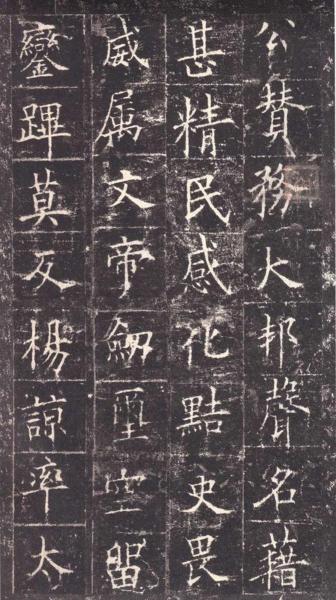 公賛務大邦聲名藉
甚精民感化黠吏畏
威属文帝劒璽空留
鑾蹕莫反楊諒率太